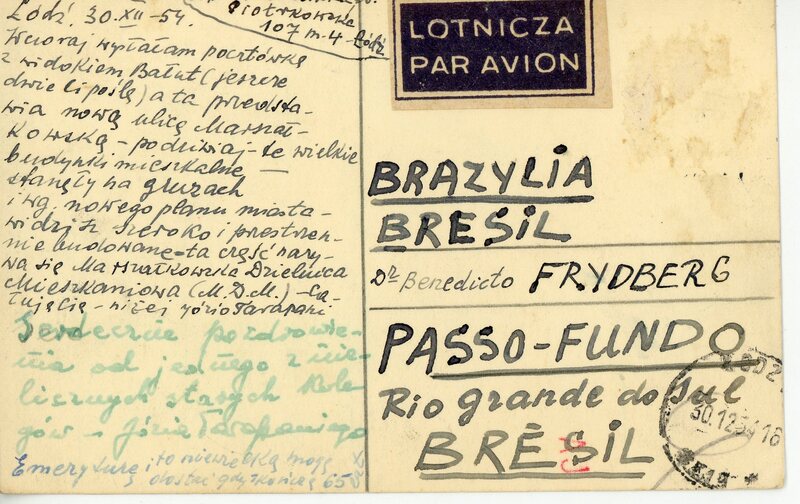 Łódź, 30.XII-54.
Piotrkowska
107 m-4 Łódź
Wczoraj wysłałam pocztówkę
z widokiem Bałut (jeszcze
dwie Ci poślę) a ta przedsta-
wia nową ulicę Marszał-
kowską - podziwiaj - te wielkie
budynki mieszkalne -
stanęły na gruzach
i wg. nowego planu miasta -
widzisz szeroko i przestrzen-
nie budowane - ta część nazy-
wa się Marszałkowska Dzielnica
Mieszkaniowa (M.D.M.) - Ca-
łuję Cię - niżej Józio Tarapani
Serdeczne pozdrowie-
nia od jednego z nie-
licznych starych Kole-
gów - Józia Tarapaniego
Emeryturę i to niewielką mogę
dostać gdy skończę 65
LOTNICZA
PAR AVION
BRAZYLIA
BRESIL
Dr Benedicto FRYDBERG
PASSO-FUNDO
Rio grande do Sul
BRÉSIL
ŁÓDŹ
30.12.54 16